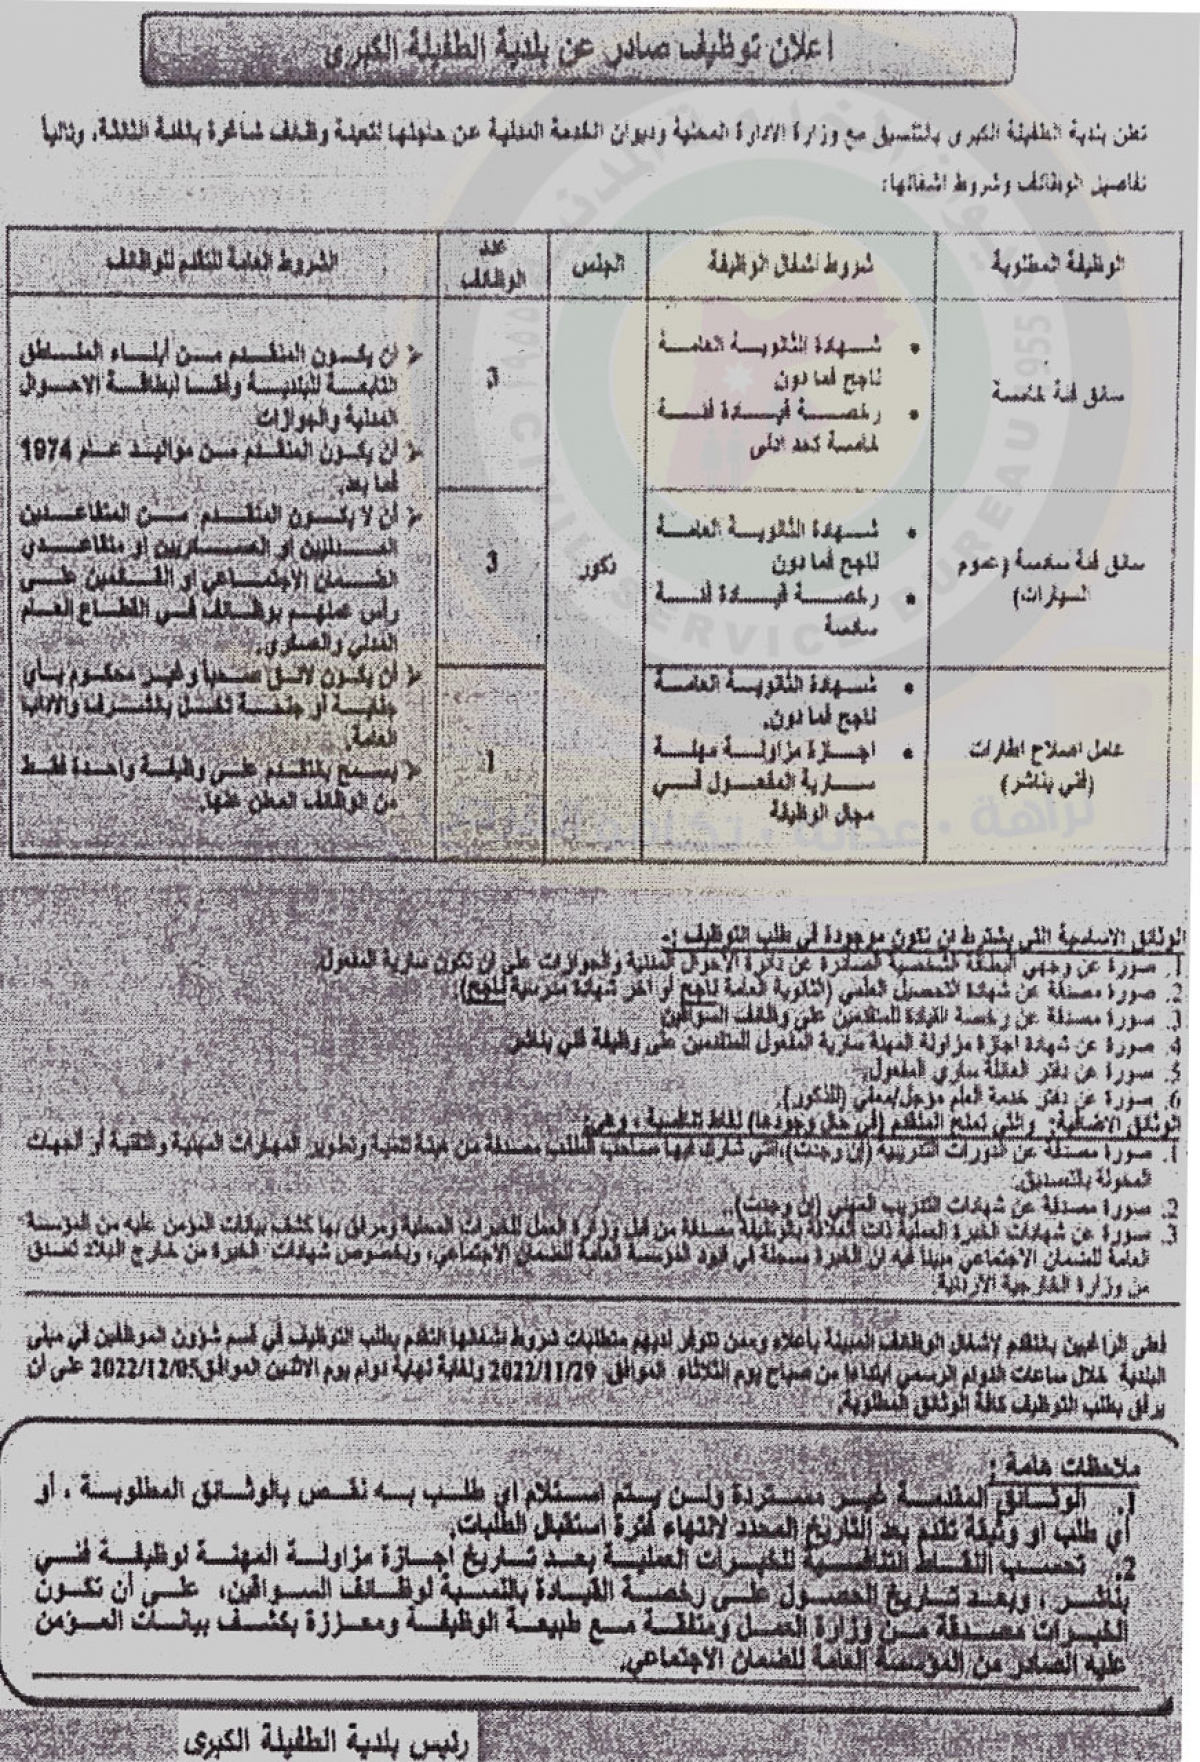 اعلان توظيف صادر عن بلدية الطفيلة الكبرى
تعلن بلدية الطفيلة الكبرى بالتنسيق مع وزارة الادارة المحلية وديوان الخدمة المدنية عن حاجتها لتعبئة وظائف شاغرة بالفئة الثالثة، وتالياً
تفاصيل الوظائف وشروط اشغالها:
الوظيفة المطلوبة
شروط اشغال الوظيفة
الجنس
عدد
الوظائف
الشروط العامة للتقدم للوظائف
سائق فئة خامسة
• شهادة الثانوية العامة
ناجح فما دون
• رخصة قيادة فئة
خامسة كحد ادنى
3
سائق فئة سادسة (عموم
السيارات)
• شهادة الثانوية العامة
ناجح فما دون
• رخصة قيادة فئة
سادسة
ذكور
3
عامل اصلاح اطارات
(فني بناشر)
• شهادة الثانوية العامة
ناجح فما دون.
• اجازة مزاولة مهنة
سارية المفعول في
مجال الوظيفة
1
أن يكون المتقدم من أبناء المناطق
التابعة للبلدية وفقا لبطاقة الاحوال
المدنية والجوازات
أن يكون المتقدم من مواليد عام 1974
فما بعد.
أن لا يكون المتقدم من المتقاعدين
المدنيين أو العسكريين أو متقاعدي
الضمان الإجتماعي أو القائمين على
رأس عملهم بوظائف في القطاع العام
المدني والعسكري.
أن يكون لائق صحياً وغير محكوم بأي
جناية أو جنحة تخل بالشرف والآداب
العامة.
يسمح بالتقدم على وظيفة واحدة فقط
من الوظائف المعلن عنها.
CIVIL SERVICE BUREAU 1955
نزاهة . عدالة . تكافؤ
الوثائق الاساسية التي يشترط ان تكون موجودة في طلب التوظيف :-
1. صورة عن وجهي البطاقة الشخصية الصادرة عن دائرة الأحوال المدنية والجوازات على ان تكون سارية المفعول.
2. صورة مصدقة عن شهادة التحصيل العلمي (الثانوية العامة ناجح أو اخر شهادة مدرسية ناجح).
3. صورة مصدقة عن رخصة القيادة للمتقدمين على وظائف السواقين
4. صورة عن شهادة اجازة مزاولة المهنة سارية المفعول للمتقدمين على وظيفة فني بناشر.
5. صورة عن دفتر العائلة ساري المفعول.
6. صورة عن دفتر خدمة العلم مؤجل/معفي (للذكور).
الوثائق الاضافية: والتي تمنح المتقدم (في حال وجودها) نقاط تنافسية ، وهي:
1. صورة مصدقة عن الدورات التدريبية (إن وجدت)،التي شارك فيها صاحب الطلب مصدقة من هيئة تنمية وتطوير المهارات المهنية والتقنية أو الجهات
المخولة بالتصديق.
2. صورة مصدقة عن شهادات التدريب المهني (إن وجدت)..
3. صورة عن شهادات الخبرة العملية ذات العلاقة بالوظيفة مصدقة من قبل وزارة العمل للخبرات المحلية ومرفق بها كشف بيانات المؤمن عليه من المؤسسة
العامة للضمان الاجتماعي مبيناً فيه ان الخبرة مسجلة في قيود المؤسسة العامة للضمان الاجتماعي، وبخصوص شهادات الخبرة من خارج البلاد تصدق
من وزارة الخارجية الاردنية.
فعلى الراغبين بالتقدم لإشغال الوظائف المبينة بأعلاه وممن تتوفر لديهم متطلبات شروط اشغالها التقدم بطلب التوظيف في قسم شؤون الموظفين في مبنى
البلدية خلال ساعات الدوام الرسمي ابتداءا من صباح يوم الثلاثاء الموافق 2022/11/29 ولغاية نهاية دوام يوم الاثنين الموافق2022/12/05 على ان
يرفق بطلب التوظيف كافة الوثائق المطلوبة.
ملاحظات هامة :
1. الوثائق المقدمة غير مستردة ولن يتم استلام اي طلب به نقص بالوثائق المطلوبة ، أو
أي طلب او وثيقة تقدم بعد التاريخ المحدد لانتهاء فترة استقبال الطلبات.
2. تحسب النقاط التنافسية للخبرات العملية بعد تاريخ اجازة مزاولة المهنة لوظيفة فني
بناشر ، وبعد تاريخ الحصول على رخصة القيادة بالنسبة لوظائف السواقين، على أن تكون
الخبرات مصدقة من وزارة العمل ومتفقة مع طبيعة الوظيفة ومعززة بكشف بيانات المؤمن
عليه الصادر من المؤسسة العامة للضمان الاجتماعي.
رئيس بلدية الطفيلة الكبرى